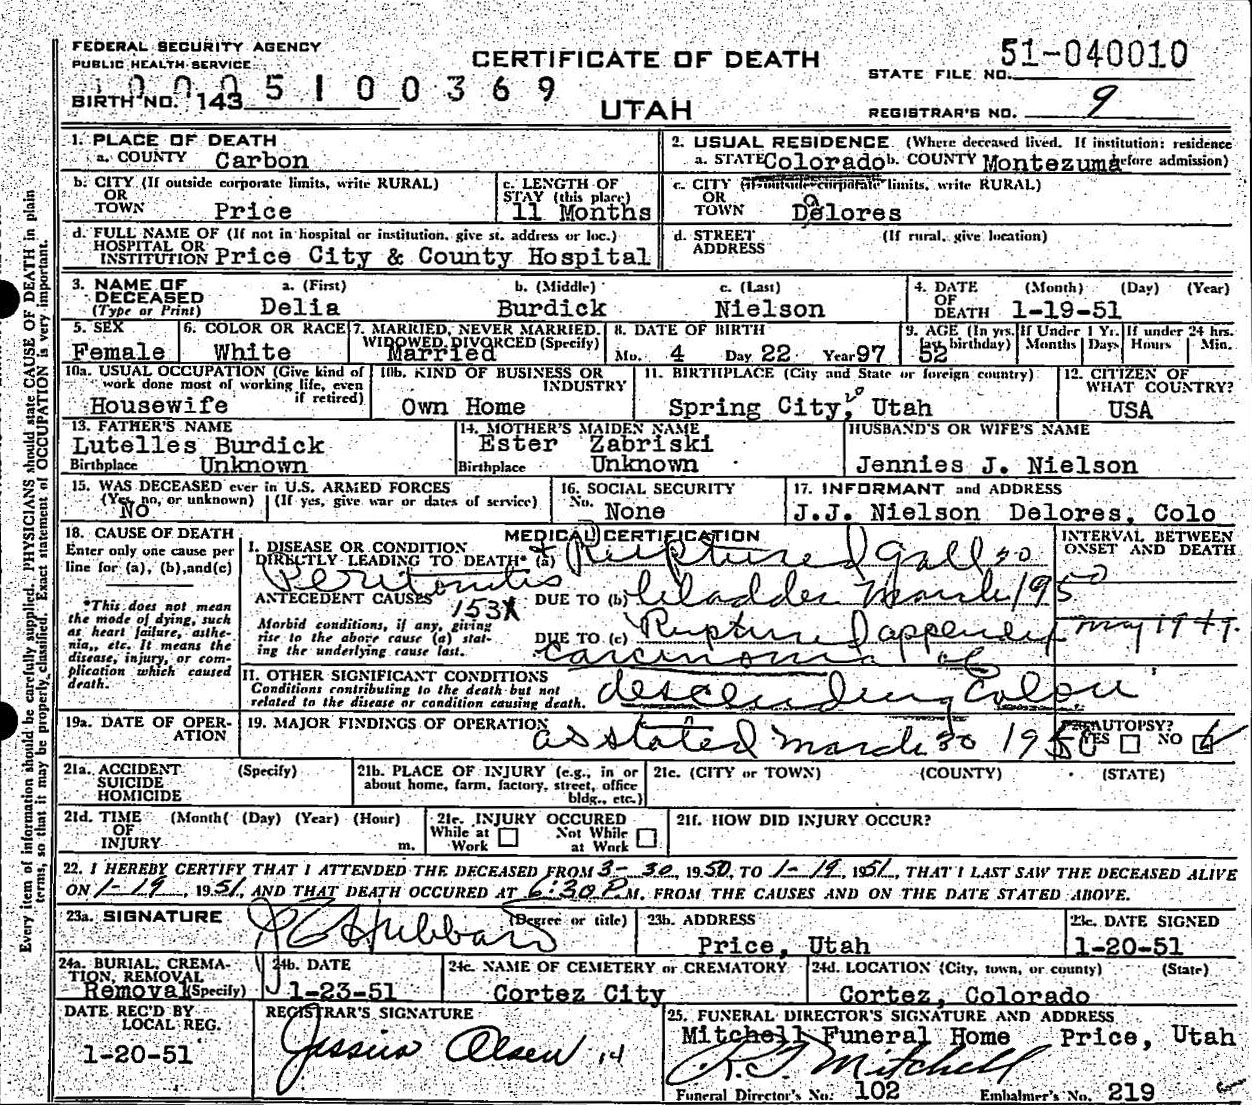 FEDERAL SECURITY AGENCY
PUBLIC HEALTH SERVICE
CERTIFICATE OF DEATH
51-040010
STATE FILE NO.
0005100369
BIRTH NO. 143
UTAH
REGISTRAR'S NO. 9
1. PLACE OF DEATH
a. COUNTY Carbon
2. USUAL RESIDENCE (Where deceased lived. If institution: residence
a. STATE Colorado b. COUNTY Montezuma before admission)
b. CITY (If outside corporate limits, write RURAL)
OR
TOWN Price
c. LENGTH OF
STAY (this place)
11 Months
c. CITY (If outside corporate limits, write RURAL)
OR
TOWN Delores
d. FULL NAME OF (If not in hospital or institution, give st. address or loc.)
HOSPITAL OR
INSTITUTION Price City & County Hospital
d. STREET (If rural, give location)
ADDRESS
3. NAME OF DECEASED
(Type or Print)
a. (First) b. (Middle) c. (Last)
Delia Burdick Nielson
4. DATE OF DEATH (Month) (Day) (Year)
1-19-51
5. SEX
Female
6. COLOR OR RACE
White
7. MARRIED, NEVER MARRIED,
WIDOWED, DIVORCED (Specify)
Married
8. DATE OF BIRTH
Mo. 4 Day 22 Year 97
9. AGE (In yrs. last birthday)
52
If Under 1 Yr.
Months Days
If under 24 hrs.
Hours Min.
10a. USUAL OCCUPATION (Give kind of
work done most of working life, even
if retired)
Housewife
10b. KIND OF BUSINESS OR
INDUSTRY
Own Home
11. BIRTHPLACE (City and State or foreign country)
Spring City, Utah
12. CITIZEN OF
WHAT COUNTRY?
USA
13. FATHER'S NAME
Lutelles Burdick
Birthplace Unknown
14. MOTHER'S MAIDEN NAME
Ester Zabriski
Birthplace Unknown
HUSBAND'S OR WIFE'S NAME
Jennies J. Nielson
15. WAS DECEASED ever in U.S. ARMED FORCES
(Yes, no, or unknown) (If yes, give war or dates of service)
No
16. SOCIAL SECURITY
No. None
17. INFORMANT and ADDRESS
J.J. Nielson Delores, Colo
18. CAUSE OF DEATH
Enter only one cause per
line for (a), (b), and (c)
*This does not mean
the mode of dying, such
as heart failure, asthe-
nia, etc. It means the
disease, injury, or com-
plication which caused
death.
MEDICAL CERTIFICATION
INTERVAL BETWEEN
ONSET AND DEATH
I. DISEASE OR CONDITION
DIRECTLY LEADING TO DEATH* (a) + Ruptured Gall 30
Peritonitis
ANTECEDENT CAUSES DUE TO (b) bladder March 1950
153X
Morbid conditions, if any, giving
rise to the above cause (a) stat-
ing the underlying cause last.
DUE TO (c) Ruptured appendix May 1949.
carcinoma of
II. OTHER SIGNIFICANT CONDITIONS
Conditions contributing to the death but not
related to the disease or condition causing death.
descending Colon
19a. DATE OF OPER-
ATION
19. MAJOR FINDINGS OF OPERATION
as stated March 30 1950
AUTOPSY?
YES NO
21a. ACCIDENT (Specify)
SUICIDE
HOMICIDE
21b. PLACE OF INJURY (e.g., in or
about home, farm, factory, street, office
bldg., etc.)
21c. (CITY or TOWN) (COUNTY) (STATE)
21d. TIME (Month) (Day) (Year) (Hour)
OF
INJURY m.
21e. INJURY OCCURED
While at Work Not While at Work
21f. HOW DID INJURY OCCUR?
22. I HEREBY CERTIFY THAT I ATTENDED THE DECEASED FROM 3-30, 1950, TO 1-19, 1951, THAT I LAST SAW THE DECEASED ALIVE
ON 1-19, 1951, AND THAT DEATH OCCURED AT 6:30 P.M. FROM THE CAUSES AND ON THE DATE STATED ABOVE.
23a. SIGNATURE (Degree or title)
Hubbard
23b. ADDRESS
Price, Utah
23c. DATE SIGNED
1-20-51
24a. BURIAL, CREMA-
TION, REMOVAL
Removal (Specify)
24b. DATE
1-23-51
24c. NAME OF CEMETERY or CREMATORY
Cortez City
24d. LOCATION (City, town, or county) (State)
Cortez, Colorado
DATE REC'D BY
LOCAL REG.
1-20-51
REGISTRAR'S SIGNATURE
Olsen 14
25. FUNERAL DIRECTOR'S SIGNATURE AND ADDRESS
Mitchell Funeral Home Price, Utah
Mitchell
Funeral Director's No. 102 Embalmer's No. 219
Every item of information should be carefully supplied. PHYSICIANS should state CAUSE OF DEATH in plain
terms, so that it may be properly classified. Exact statement of OCCUPATION is very important.